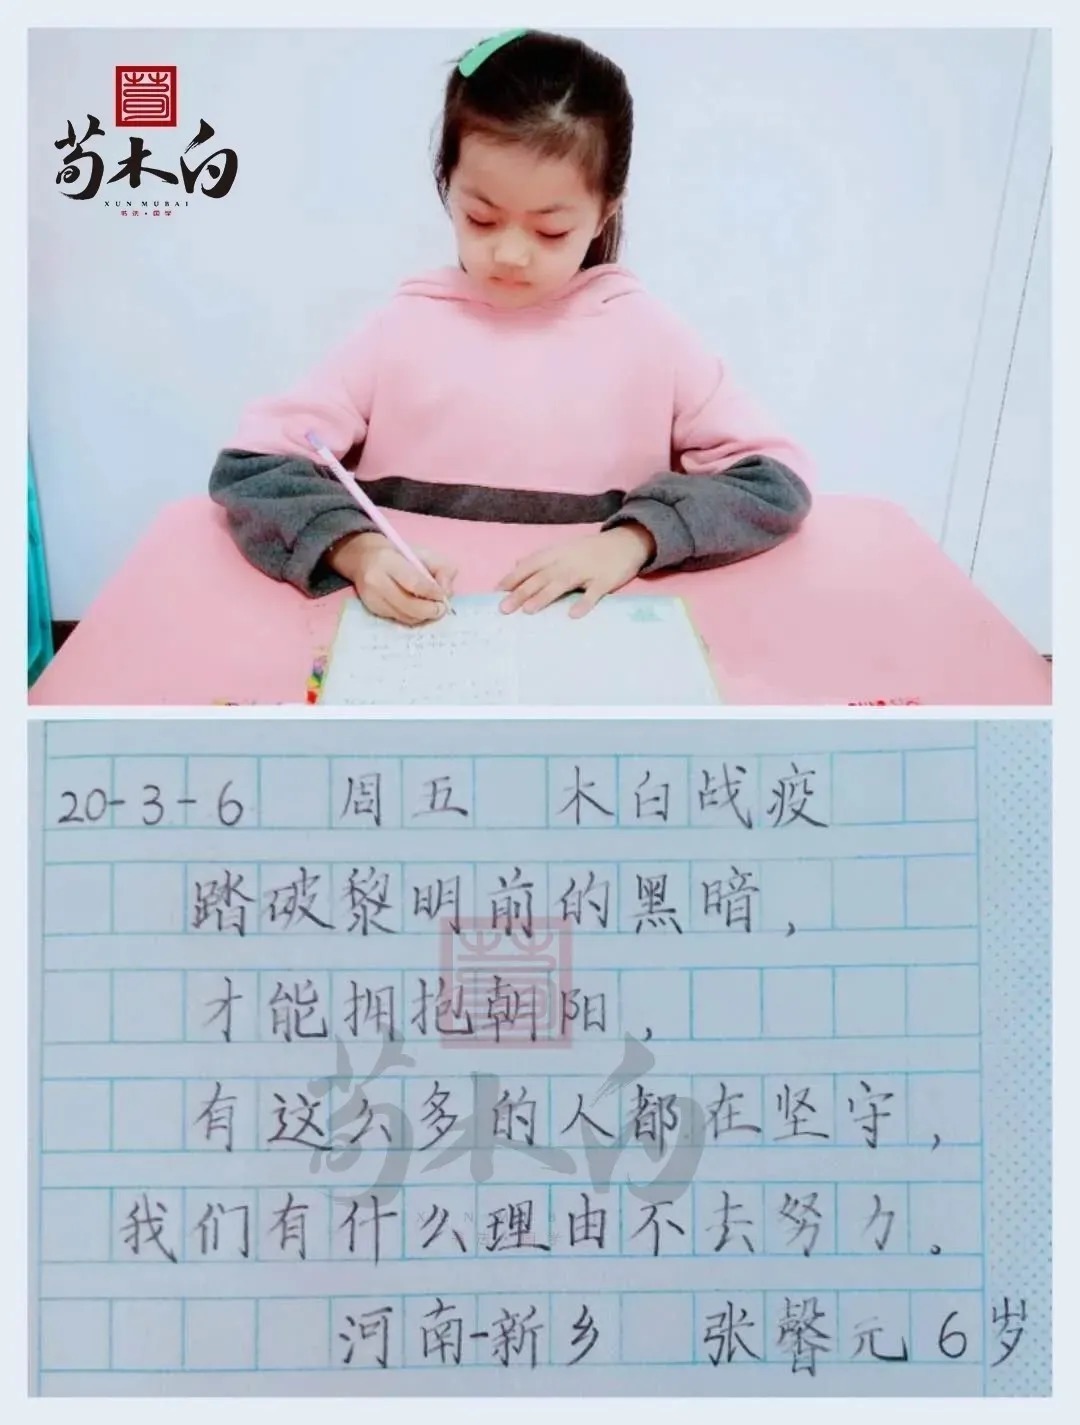 荀木白
XUN MUBAI
书法·国学
20-3-6 周五 木白战疫
踏破黎明前的黑暗，
才能拥抱朝阳，
有这么多的人都在坚守，
我们有什么理由不去努力。
河南-新乡 张馨元6岁